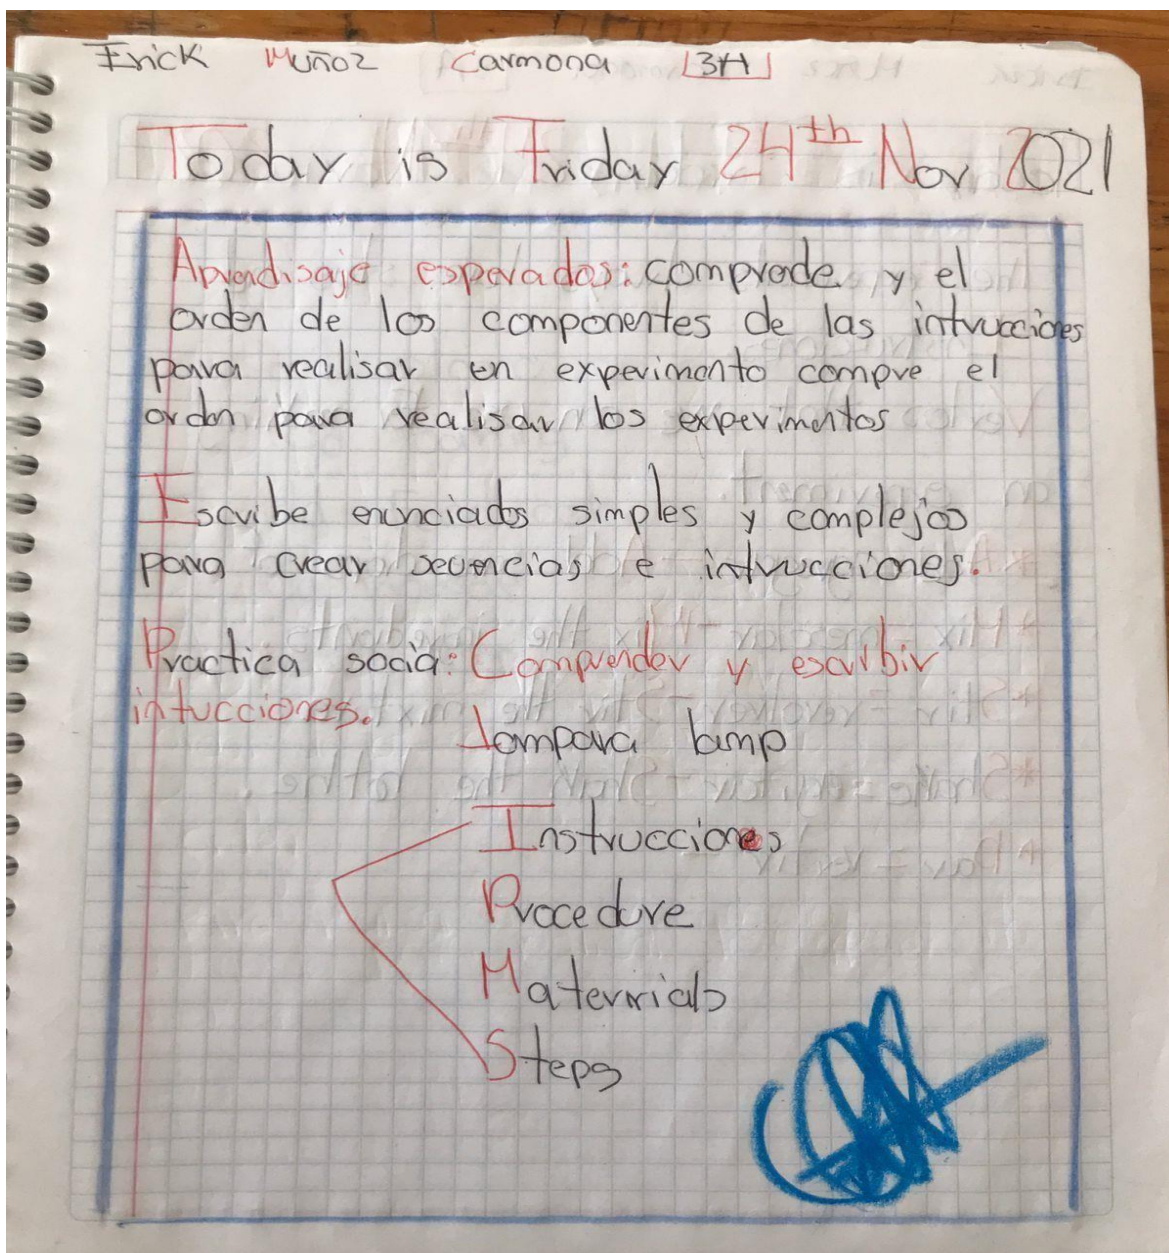 Erick Muñoz Carmona 3H
Today is Friday 24th Nov 2021
Aprendisaje esperados: comprede y el
orden de los componentes de las intrucciones
para realisar en experimento compre el
ordn para realisar los experimentos
Escribe enunciados simples y complejos
para crear secuencias e intrucciones.
Practica socia: Comprender y escribir
intucciones.
lampara lamp
Instrucciones
Procedure
Materrials
Steps